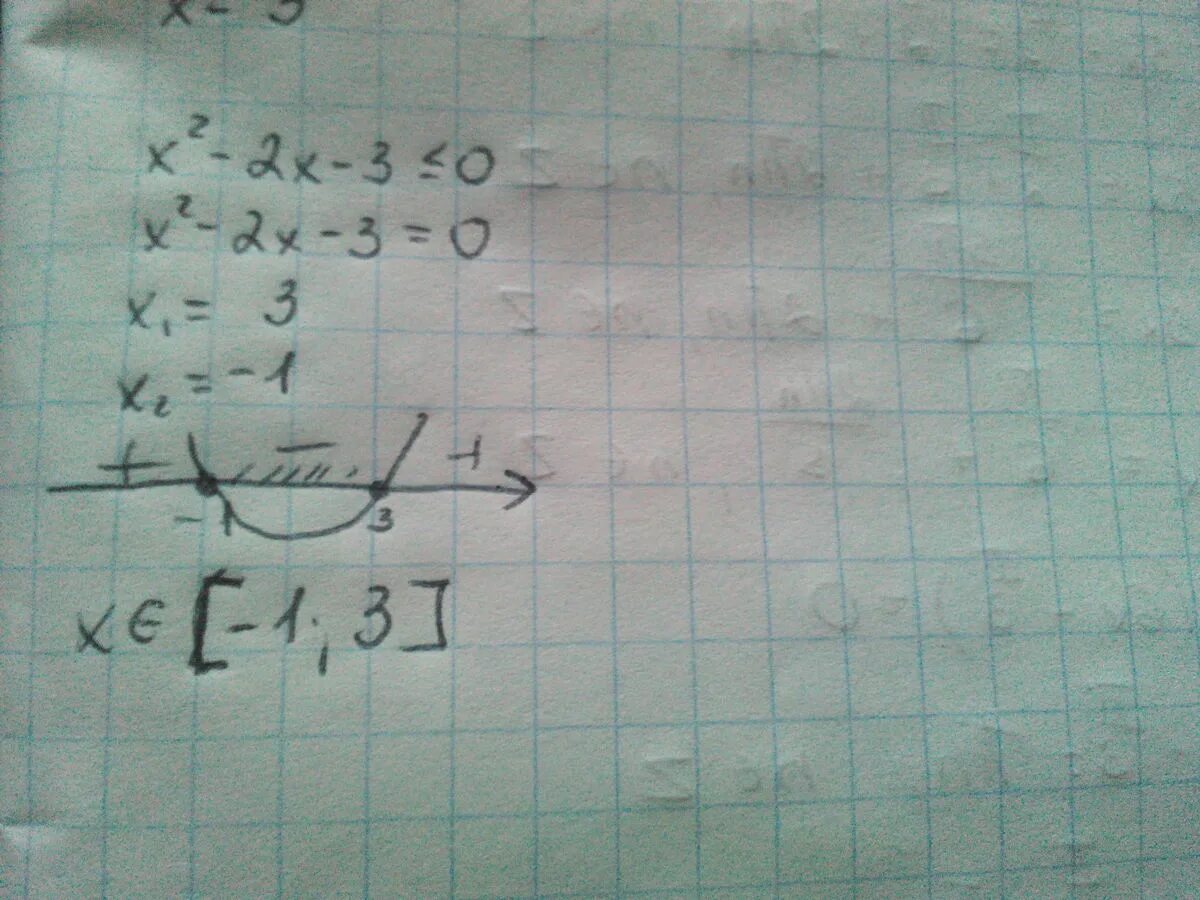 x - 3
x² - 2x - 3 ≤ 0
x² - 2x - 3 = 0
x₁ = 3
x₂ = -1
+ − +
-1 3
x ∈ [-1; 3]